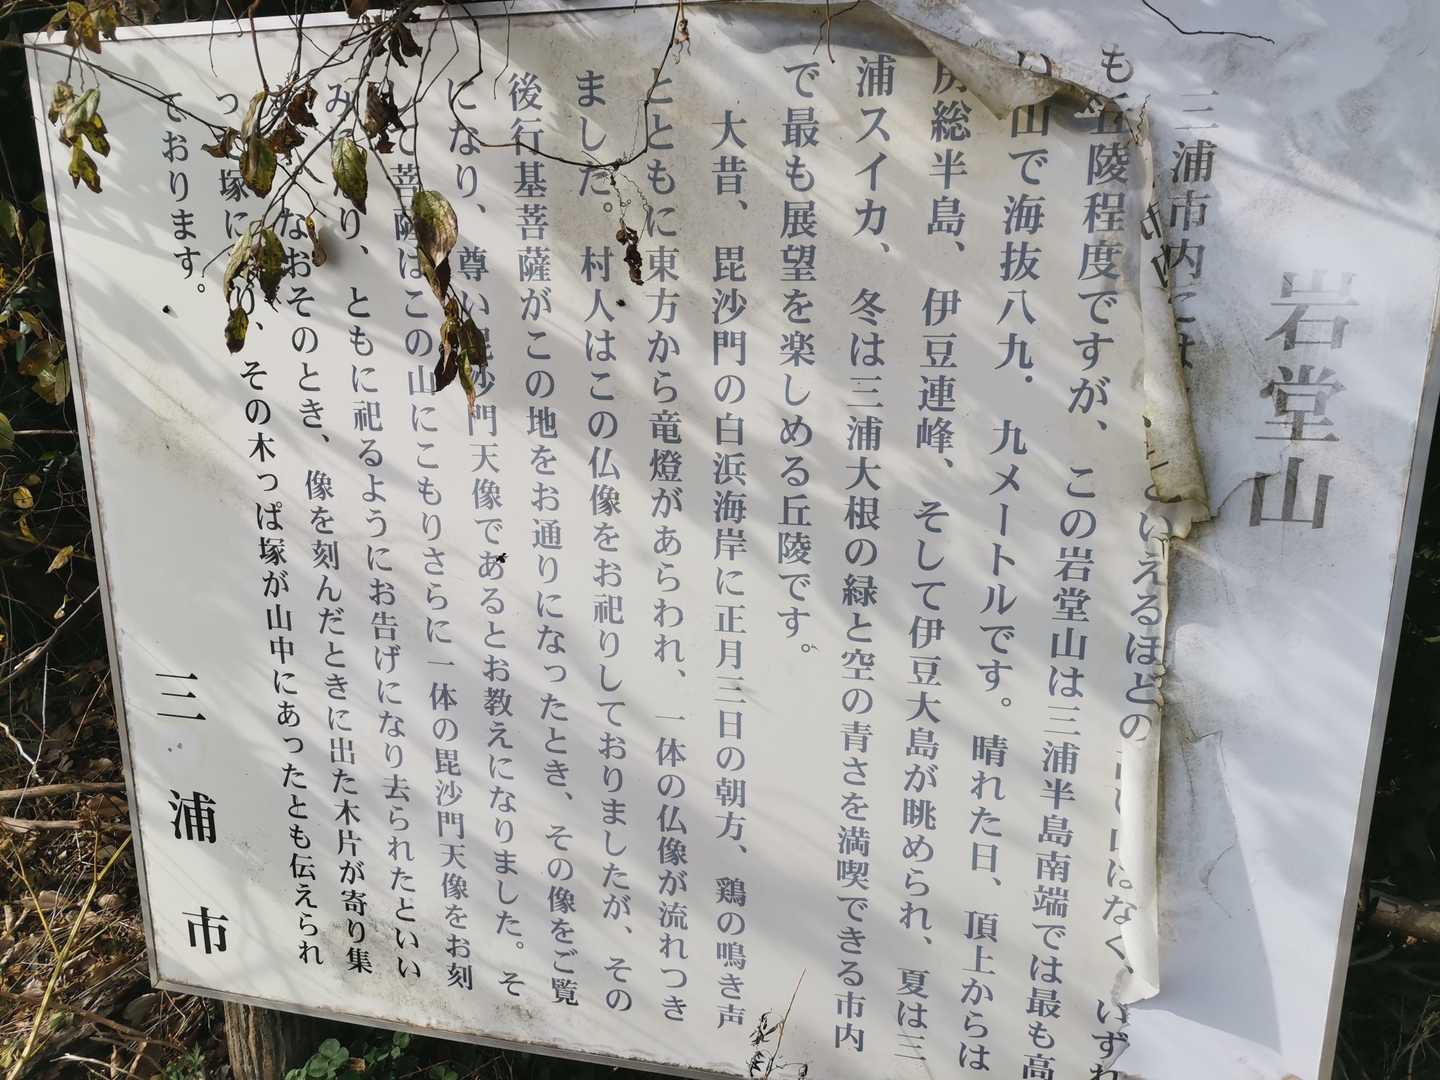 岩堂山
三浦市内には
といえるほどの高い山はなく、いずれ
も丘陵程度ですが、この岩堂山は三浦半島南端では最も高
い山で海抜八九．九メートルです。晴れた日、頂上からは
房総半島、伊豆連峰、そして伊豆大島が眺められ、夏は三
浦スイカ、冬は三浦大根の緑と空の青さを満喫できる市内
で最も展望を楽しめる丘陵です。
大昔、毘沙門の白浜海岸に正月三日の朝方、鶏の鳴き声
とともに東方から竜燈があらわれ、一体の仏像が流れつき
ました。村人はこの仏像をお祀りしておりましたが、その
後行基菩薩がこの地をお通りになったとき、その像をご覧
になり、尊い毘沙門天像であるとお教えになりました。そ
菩薩はこの山にこもりさらに一体の毘沙門天像をお刻
み り、ともに祀るようにお告げになり去られたといい
なおそのとき、像を刻んだときに出た木片が寄り集
っ 塚に り、その木っぱ塚が山中にあったとも伝えられ
ております。
三浦市